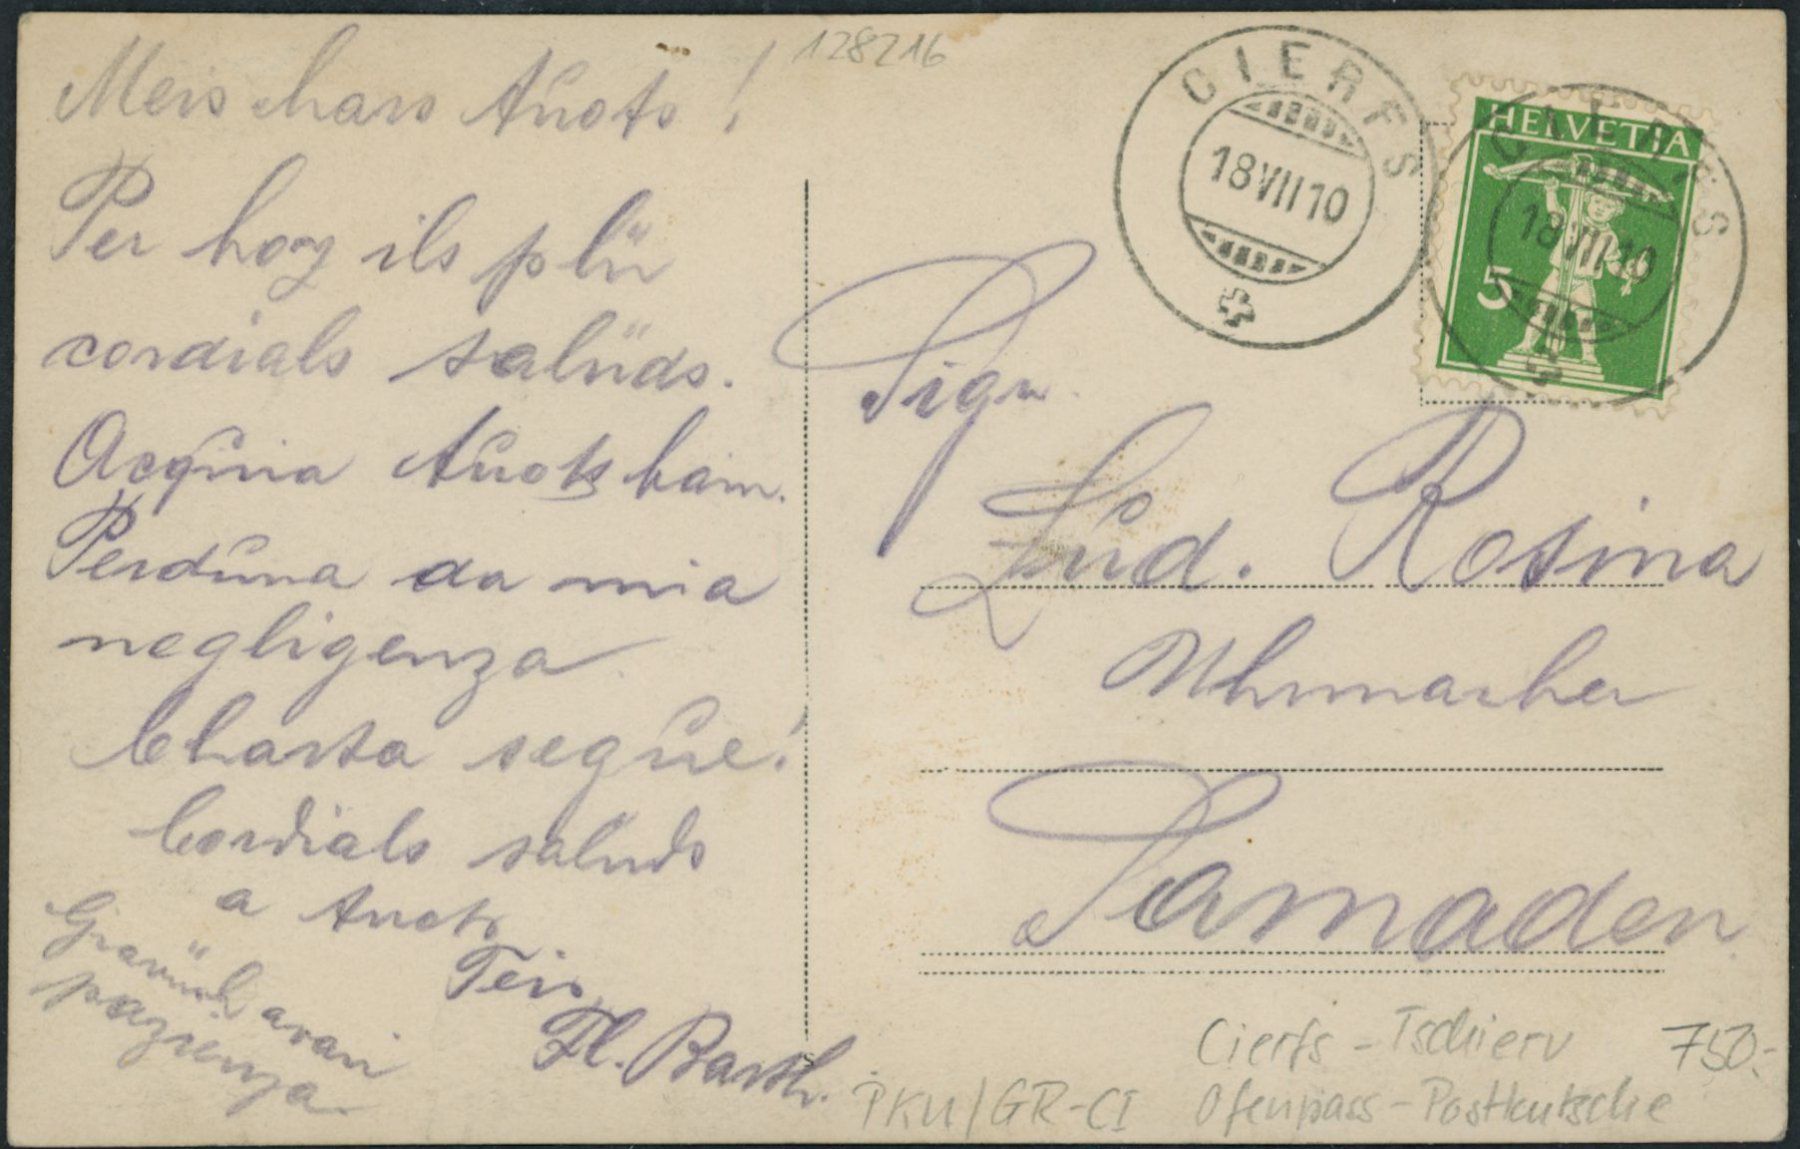 128216
Meis chars Anots!
Per hoz ils plü
cordials salüds.
Acquia Anots bain.
Perduna da mia
negligenza.
Charta segue!
Cordials salüds
a Anots
Teis
Fl. Barth.
avair
pazienza.
CIERFS
18 VII 10
HELVETIA
5
CIERFS
18 VII 10
Sigr.
Lud. Rosina
Uhrmacher
Samaden.
Cierfs - Tschierv
750.-
PKU/GR-CI
Ofenpass - Postkutsche